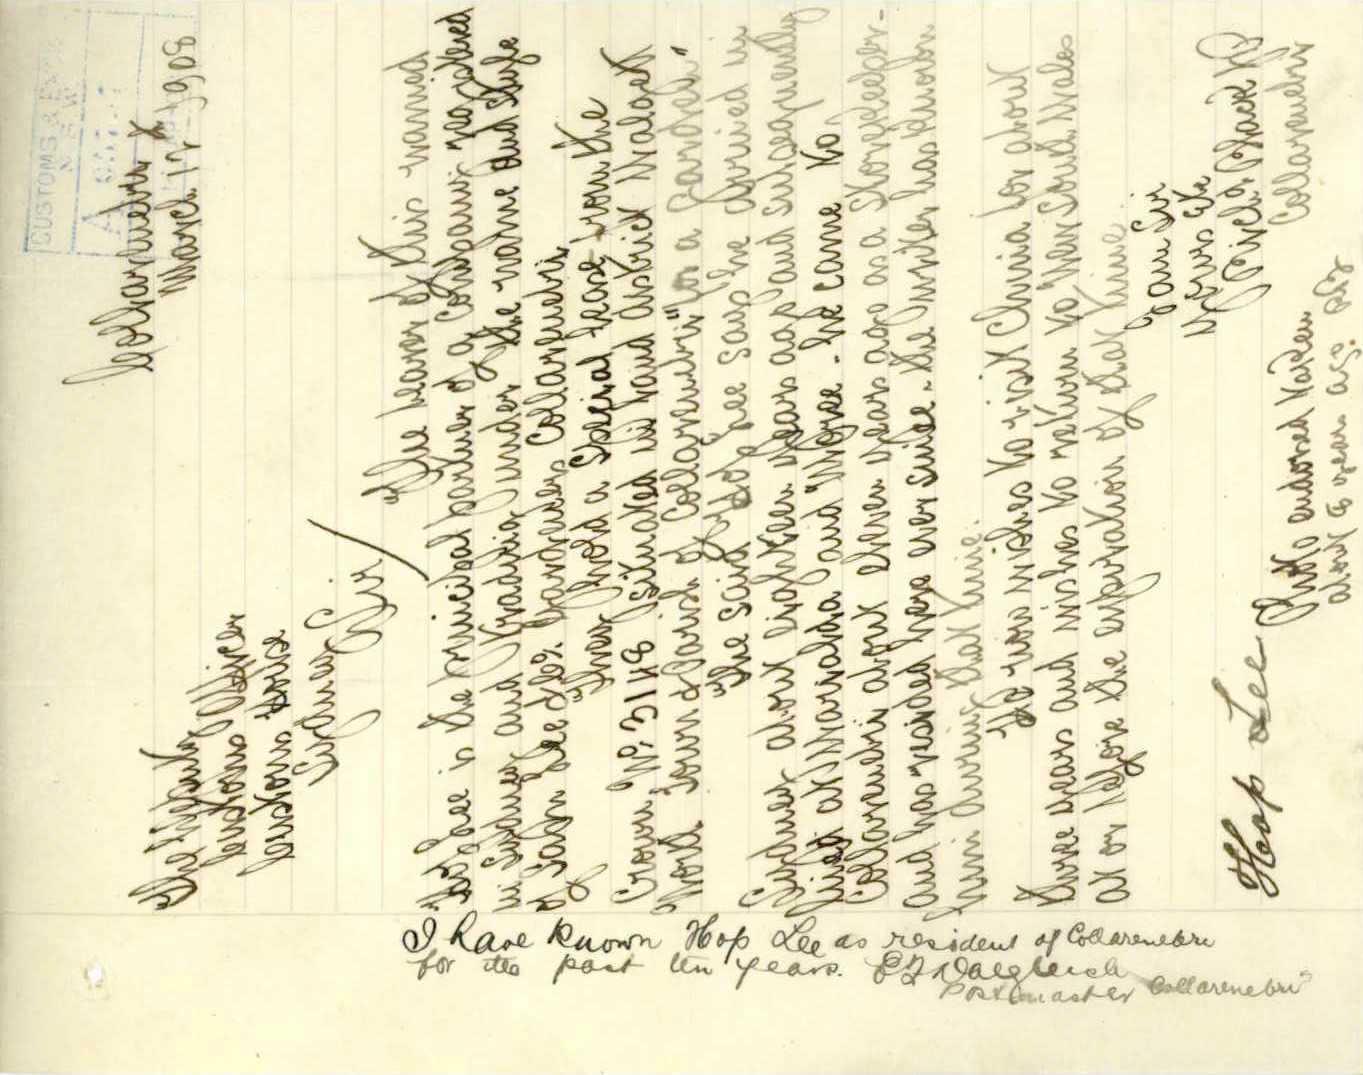 CUSTOMS & EXCISE
N.S.W.
Collarenebri
March 12 1908
The Deputy
Customs Officer
Customs House
Sydney
Sir
The bearer of this named
Hop Lee is the principal partner of a Company registered
in Sydney and trading under the name and style
of Hop Lee & Co. Gardeners Collarenebri
They hold a Special lease from the
Crown No. 3148 situated in Land district Walgett
North Town & Parish of Collarenebri "for a Garden"
The said Hop Lee says he arrived in
Sydney about eighteen years ago and subsequently
lived at Narrabri and Moree - he came to
Collarenebri about eleven years ago as a Storekeeper
and has resided here ever since - the writer has known
him during that time.
He now wishes to visit China for about
three years and wishes to return to New South Wales
at or before the expiration of that time
I am Sir
Yours &c
Black
Collarenebri
Photo endorsed Warden
about 6 years ago.
Hop Lee
I have known Hop Lee as resident of Collarenebri
for the past ten years. E J Dalgleish
Postmaster Collarenebri